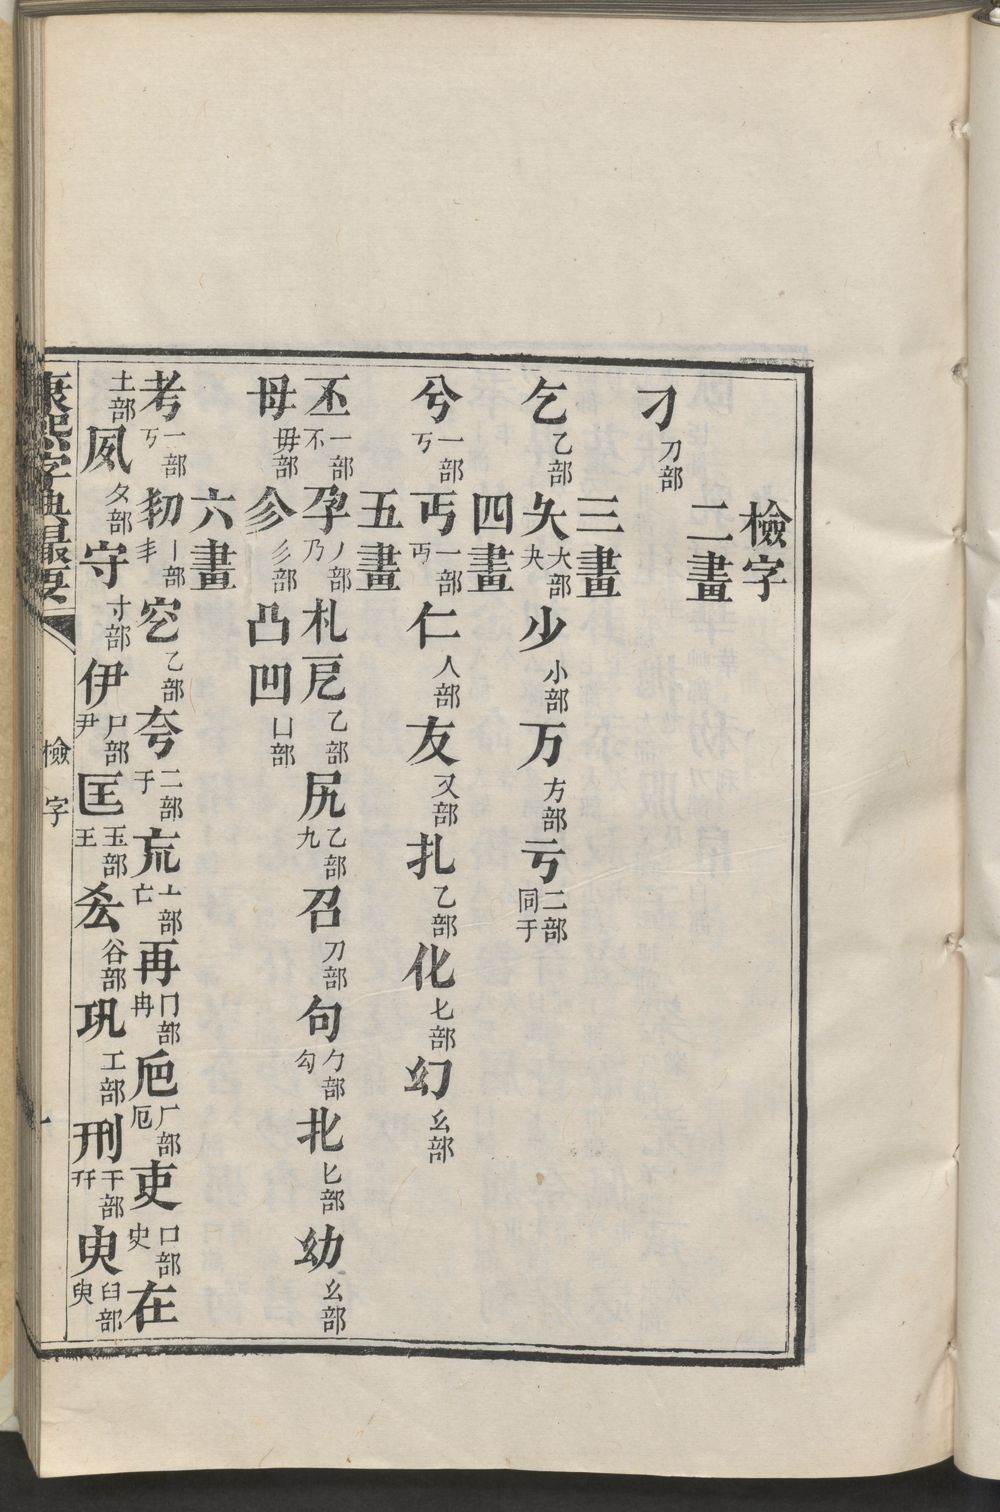 檢字
二畫
刁刀部
三畫
乞乙部夨大部夬少小部万方部亏二部同于
四畫
兮一部丂丏一部丐仁人部友又部扎乙部化匕部幻幺部
五畫
丕一部不孕丿部乃札𠨬乙部尻乙部九召刀部句勹部勾北匕部幼幺部
母毋部㐱彡部凸凹凵部
六畫
考一部丂㓞丨部丯空乙部夸二部于巟亠部亡再冂部冉卮厂部厄吏口部史在
土部夙夕部守寸部伊尸部尹匡玉部王厺谷部巩工部刑干部幵臾臼部㬰
康熙字典撮要
檢字
一